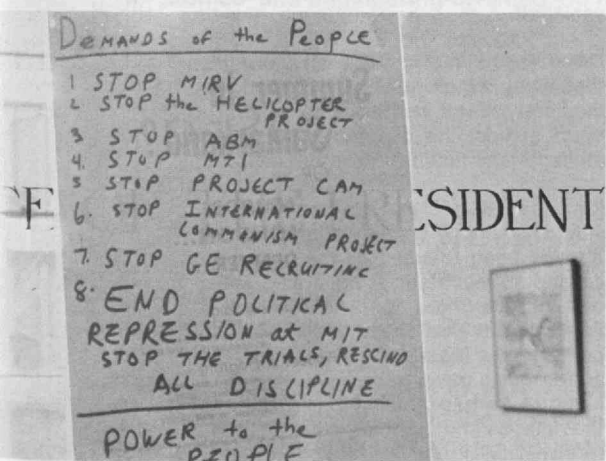 Demands of the People
1 STOP MIRV
2 STOP the HELICOPTER
PROJECT
3 STOP ABM
4. STOP MTI
5 STOP PROJECT CAM
6. STOP INTERNATIONAL
COMMUNISM PROJECT
7. STOP GE RECRUITING
8. END POLITICAL
REPRESSION at MIT
STOP THE TRIALS, RESCIND
ALL DISCIPLINE
POWER to the
PEOPLE
SIDENT